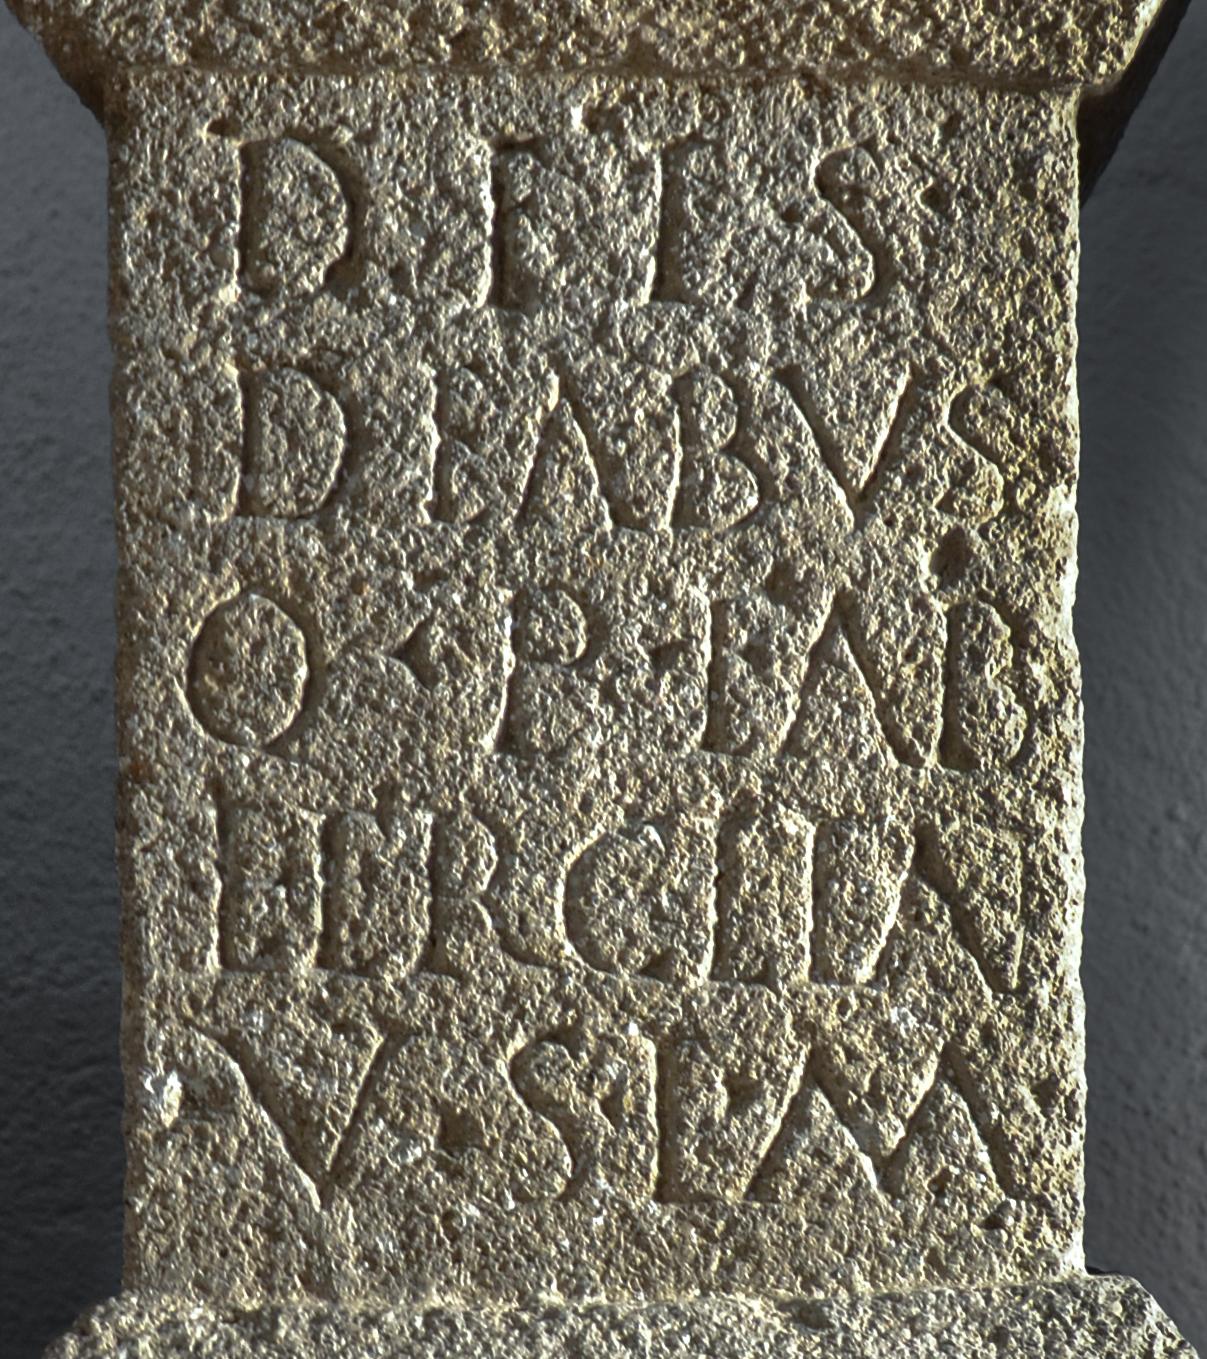 DEIS
DEABVS
Q · P · L · AB
HERCLEN
V · S · L · M ·